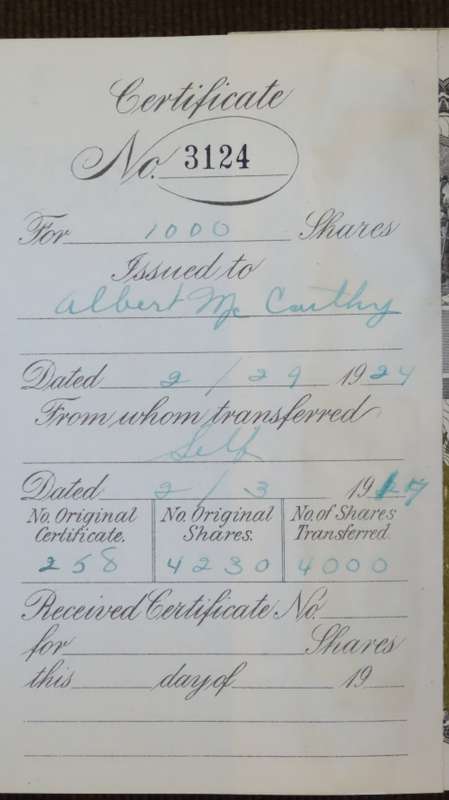 Certificate
No. 3124
For 1000 Shares
Issued to
Albert McCarthy
Dated 2 / 29 1924
From whom transferred
Self
Dated 2 / 3 19
No. Original Certificate. No. Original Shares. No. of Shares Transferred.
258 4230 4000
Received Certificate No.
for Shares
this day of 19